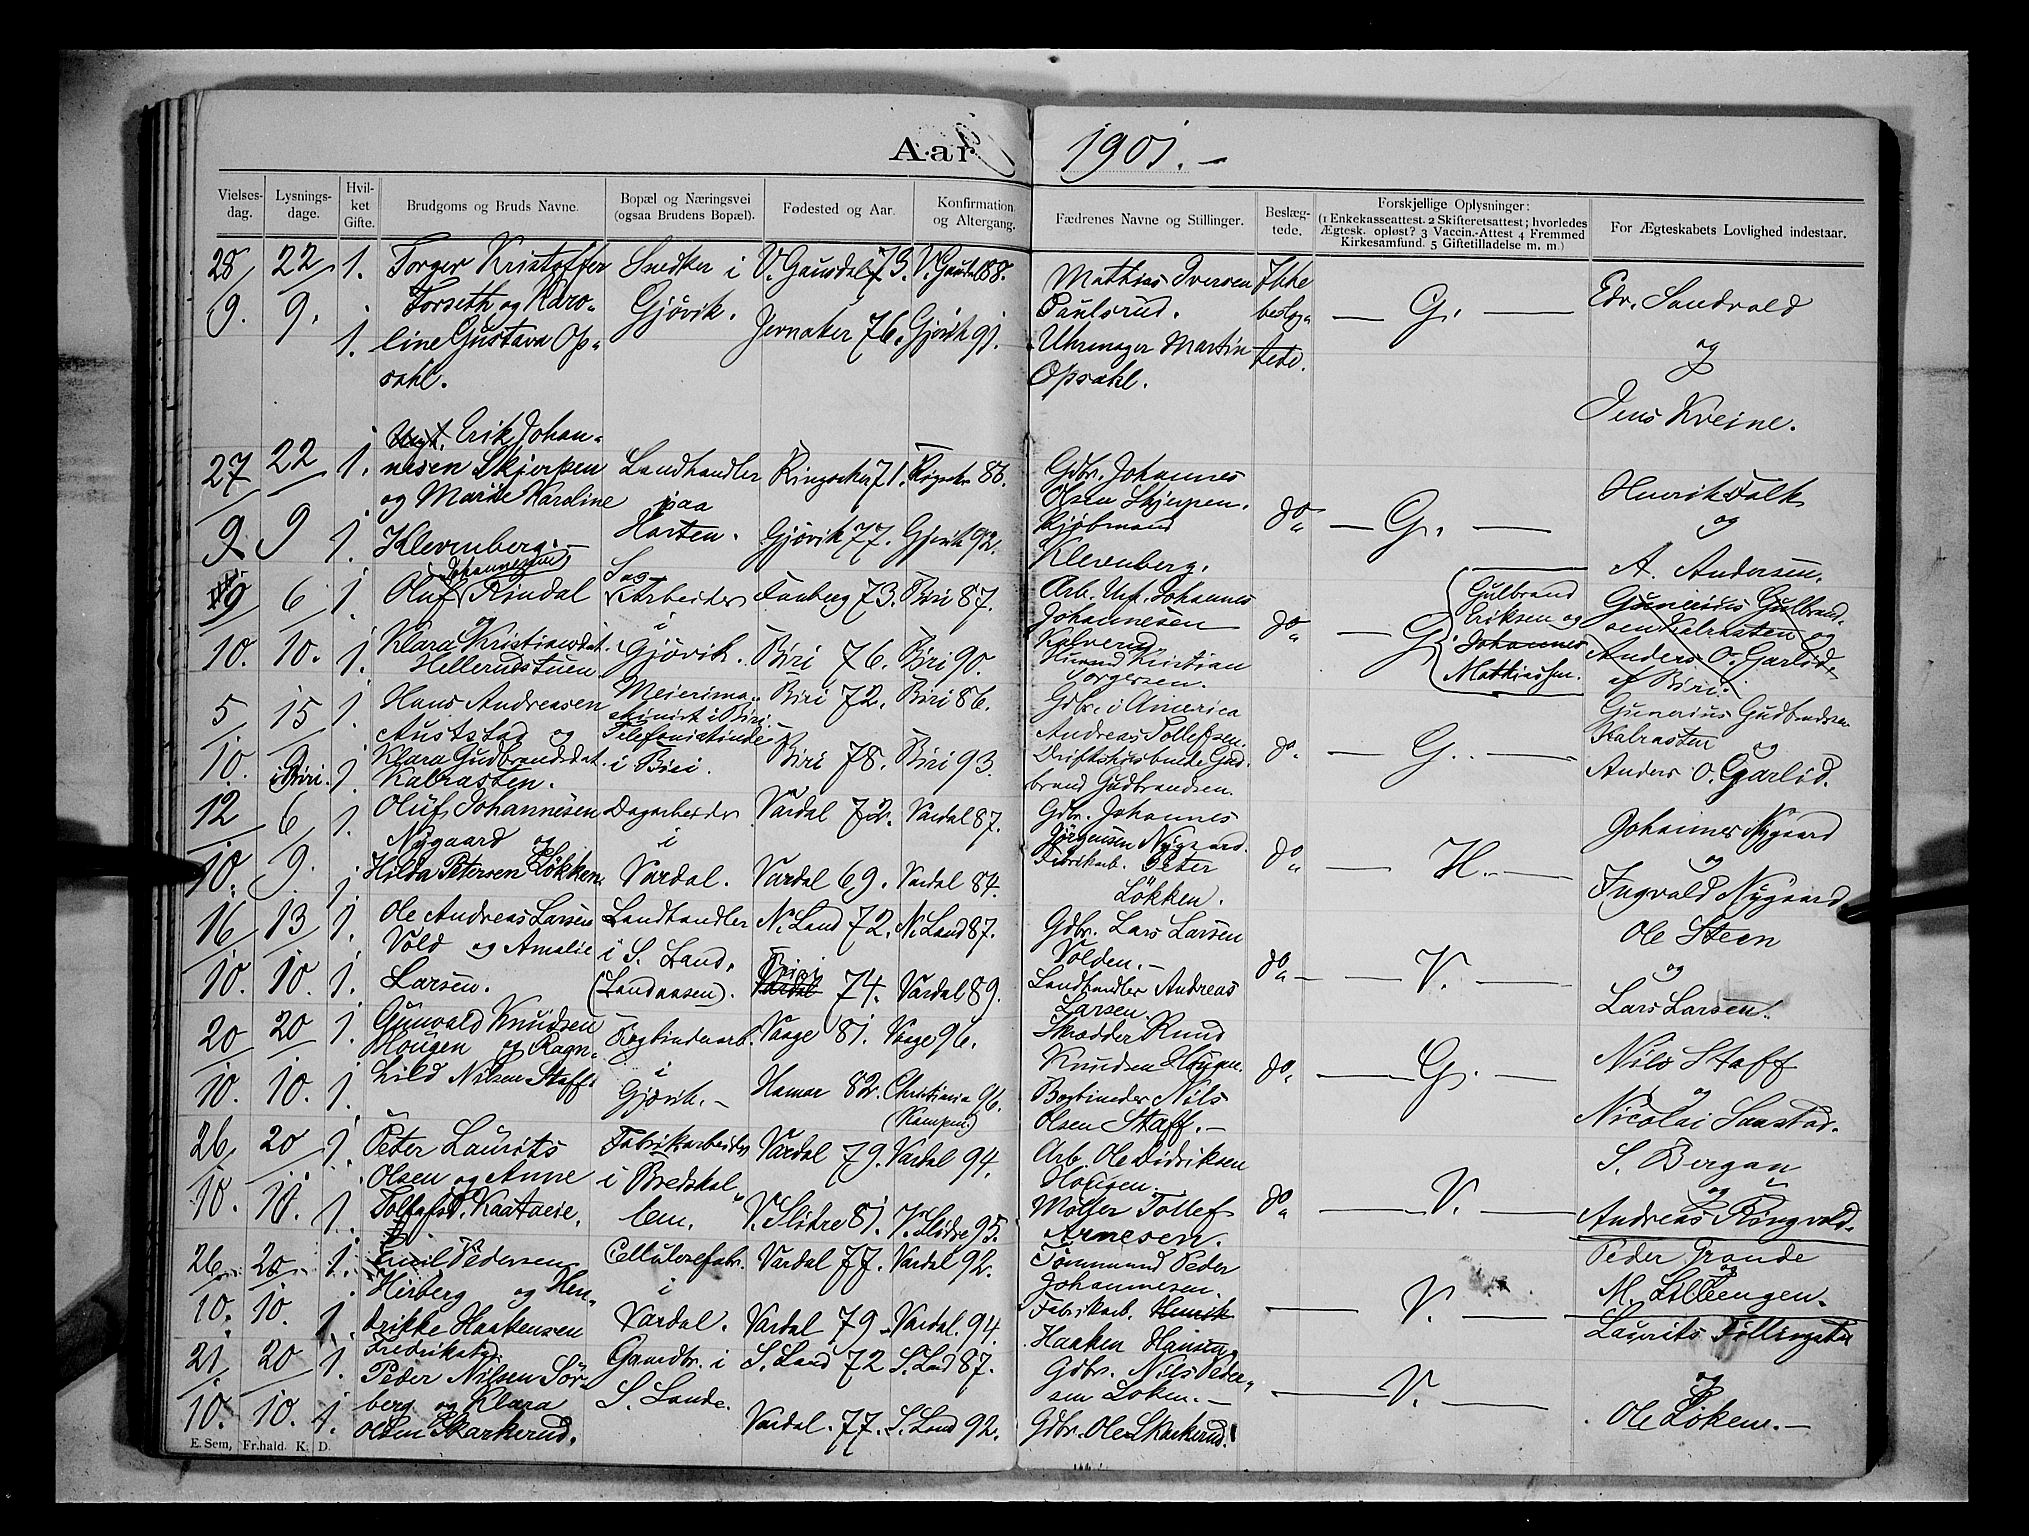 Aar 1901. –
Vielses-
dag.
Lysnings-
dage.
Hvil-
ket
Gifte.
Brudgoms og Bruds Navne.
Bopæl og Næringsvei
(ogsaa Brudens Bopæl).
Fødested og Aar.
Konfirmation
og Altergang.
Fædrenes Navne og Stillinger.
Beslæg-
tede.
Forskjellige Oplysninger:
(1 Enkekasseattest. 2 Skifteretsattest; hvorledes
Ægtesk. opløst? 3 Vaccin.-Attest 4 Fremmed
Kirkesamfund. 5 Giftetilladelse m. m.)
For Ægteskabets Lovlighed indestaar.
28/9. 22/9. 1. 1.
Torger Kristoffer
Forseth og Karo-
line Gustava Op-
sahl.
Snedker i
Gjøvik.
V. Gausdal 73. V. Gausdal 88.
Jevnaker 76. Gjøvik 91.
Mathias Iversen
Paulsrud.
Uhrmager Martin
Opsahl.
Ikke
beslæg-
tede.
— G. —
Edv. Sandvold
og
Jens Kveine.
27/9 22/9 1. 1.
Ungk. Erik Johan-
nesen Skjerpen
og Marie Karoline
Klevenberg. –
Landhandler
paa
Horten.
Ringsaker 71. Ringsaker 86.
Gjøvik 77. Gjøvik 92.
Gdbr. Johannes
Olsen Skjerpen.
Kjøbmand
Klevenberg.
do
— G. —
Henrik Falk
og
A. Andersen.
9/10. 6/10. 1. 1.
Oluf Johannesen Rindal
og
Klara Kristiansdat.
Hellerudstuen.
Sag-
arbeider
i
Gjøvik.
Faaberg 73. Biri 87.
Biri 76. Biri 90.
Johannesen
Kristian
Torgersen.
do
— G.
Gulbrand
Eriksen og
Johannes
Mathiassen.
Gunerius Gulbrand-
sen Kalrasten og
Anders O. Garlid
af Biri.
5/10. 15/9 i Biri. 1. 1.
Hans Andreasen
Auststad og
Klara Gudbrandsdat.
Kalrasten.
Meierima-
skinist i Biri.
Telefonistinde
i Biri.
Biri 72. Biri 86.
Biri 78. Biri 93.
Gdbr. i America
Andreas Tollefsen.
Driftshusbonde Gud-
brand Gudbrandsen.
do
— G. —
Gunerius Gudbrandsen
Kalrasten
og
Anders O. Garlid.
12/10. 6/9. 1. 1.
Oluf Johannesen
Nygaard og
Hilda Petersen Løkken.
Dagarbeider
i
Vardal.
Vardal 72. Vardal 87.
Vardal 69. Vardal 84.
Gdbr. Johannes
Jørgensen Nygaard.
Fabrikarb. Peter
Løkken.
do
— H. —
Johannes Nygaard
og
Ingvald Nygaard
16/10. 13/10. 1. 1.
Ole Andreas Larsen
Vold og Amalie
Larsen.
Landhandler
i S. Land.
(Landaasen).
N. Land 72. N. Land 87.
Biri
Vardal 74. Vardal 89.
Gdbr. Lars Larsen
Volden. –
Landhandler Andreas
Larsen.
do
— V. —
Ole Steen
og
Lars Larsen.
20/10. 20/10. 1. 1.
Gunvald Knudsen
Hougen og Ragn-
hild Nilsen Staff.
Bogbinderarb.
i
Gjøvik. –
Vaage 81. Vaage 96.
Hamar 82. Christiania 96.
(Kampen)
Skrædder Knud
Knudsen Hougen.
Bogbinder Nils
Olsen Staff. –
do
— G. —
Nils Staff
og
Nicolai Saastad.
26/10. 20/10. 1. 1.
Peter Laurits
Olsen og Anne
Tollefsd. Kaataeie.
Fabrikarbeider
i Bredskal-
len.
Vardal 79. Vardal 94.
V. Slidre 81. V. Slidre 95.
Arb. Ole Didriksen
Hougen.
Møller Tollef
Arnesen.
do
— V. —
S. Bergan
og
Andreas Ringvold.
26/10. 20/10. 1. 1.
Emil Pedersen
Hirberg og Hen-
drikke Haakensen
Cellulosefabr.
i
Vardal.
Vardal 77. Vardal 92.
Vardal 79. Vardal 94.
Tømmermand Peder
Johannesen.
Fabrikarb. Henrik
Haaken Hansen.
— V. —
Peder Grande
og
M. Lilleengen.
21/10. 20/10. 1. 1.
Fredrikstad
Peder Nilsen Sør-
berg og Klara
Olsen Skarkerud.
Gaardbr. i
S. Land.
S. Land 72 S. Land 87.
Vardal 77. S. Land 92.
Gdbr. Nils Peder-
sen Løken. –
Gdbr. Ole Skarkerud.
— V. —
Laurits
og
Ole Løken. –
E. Sem, Fr.hald. K. D.